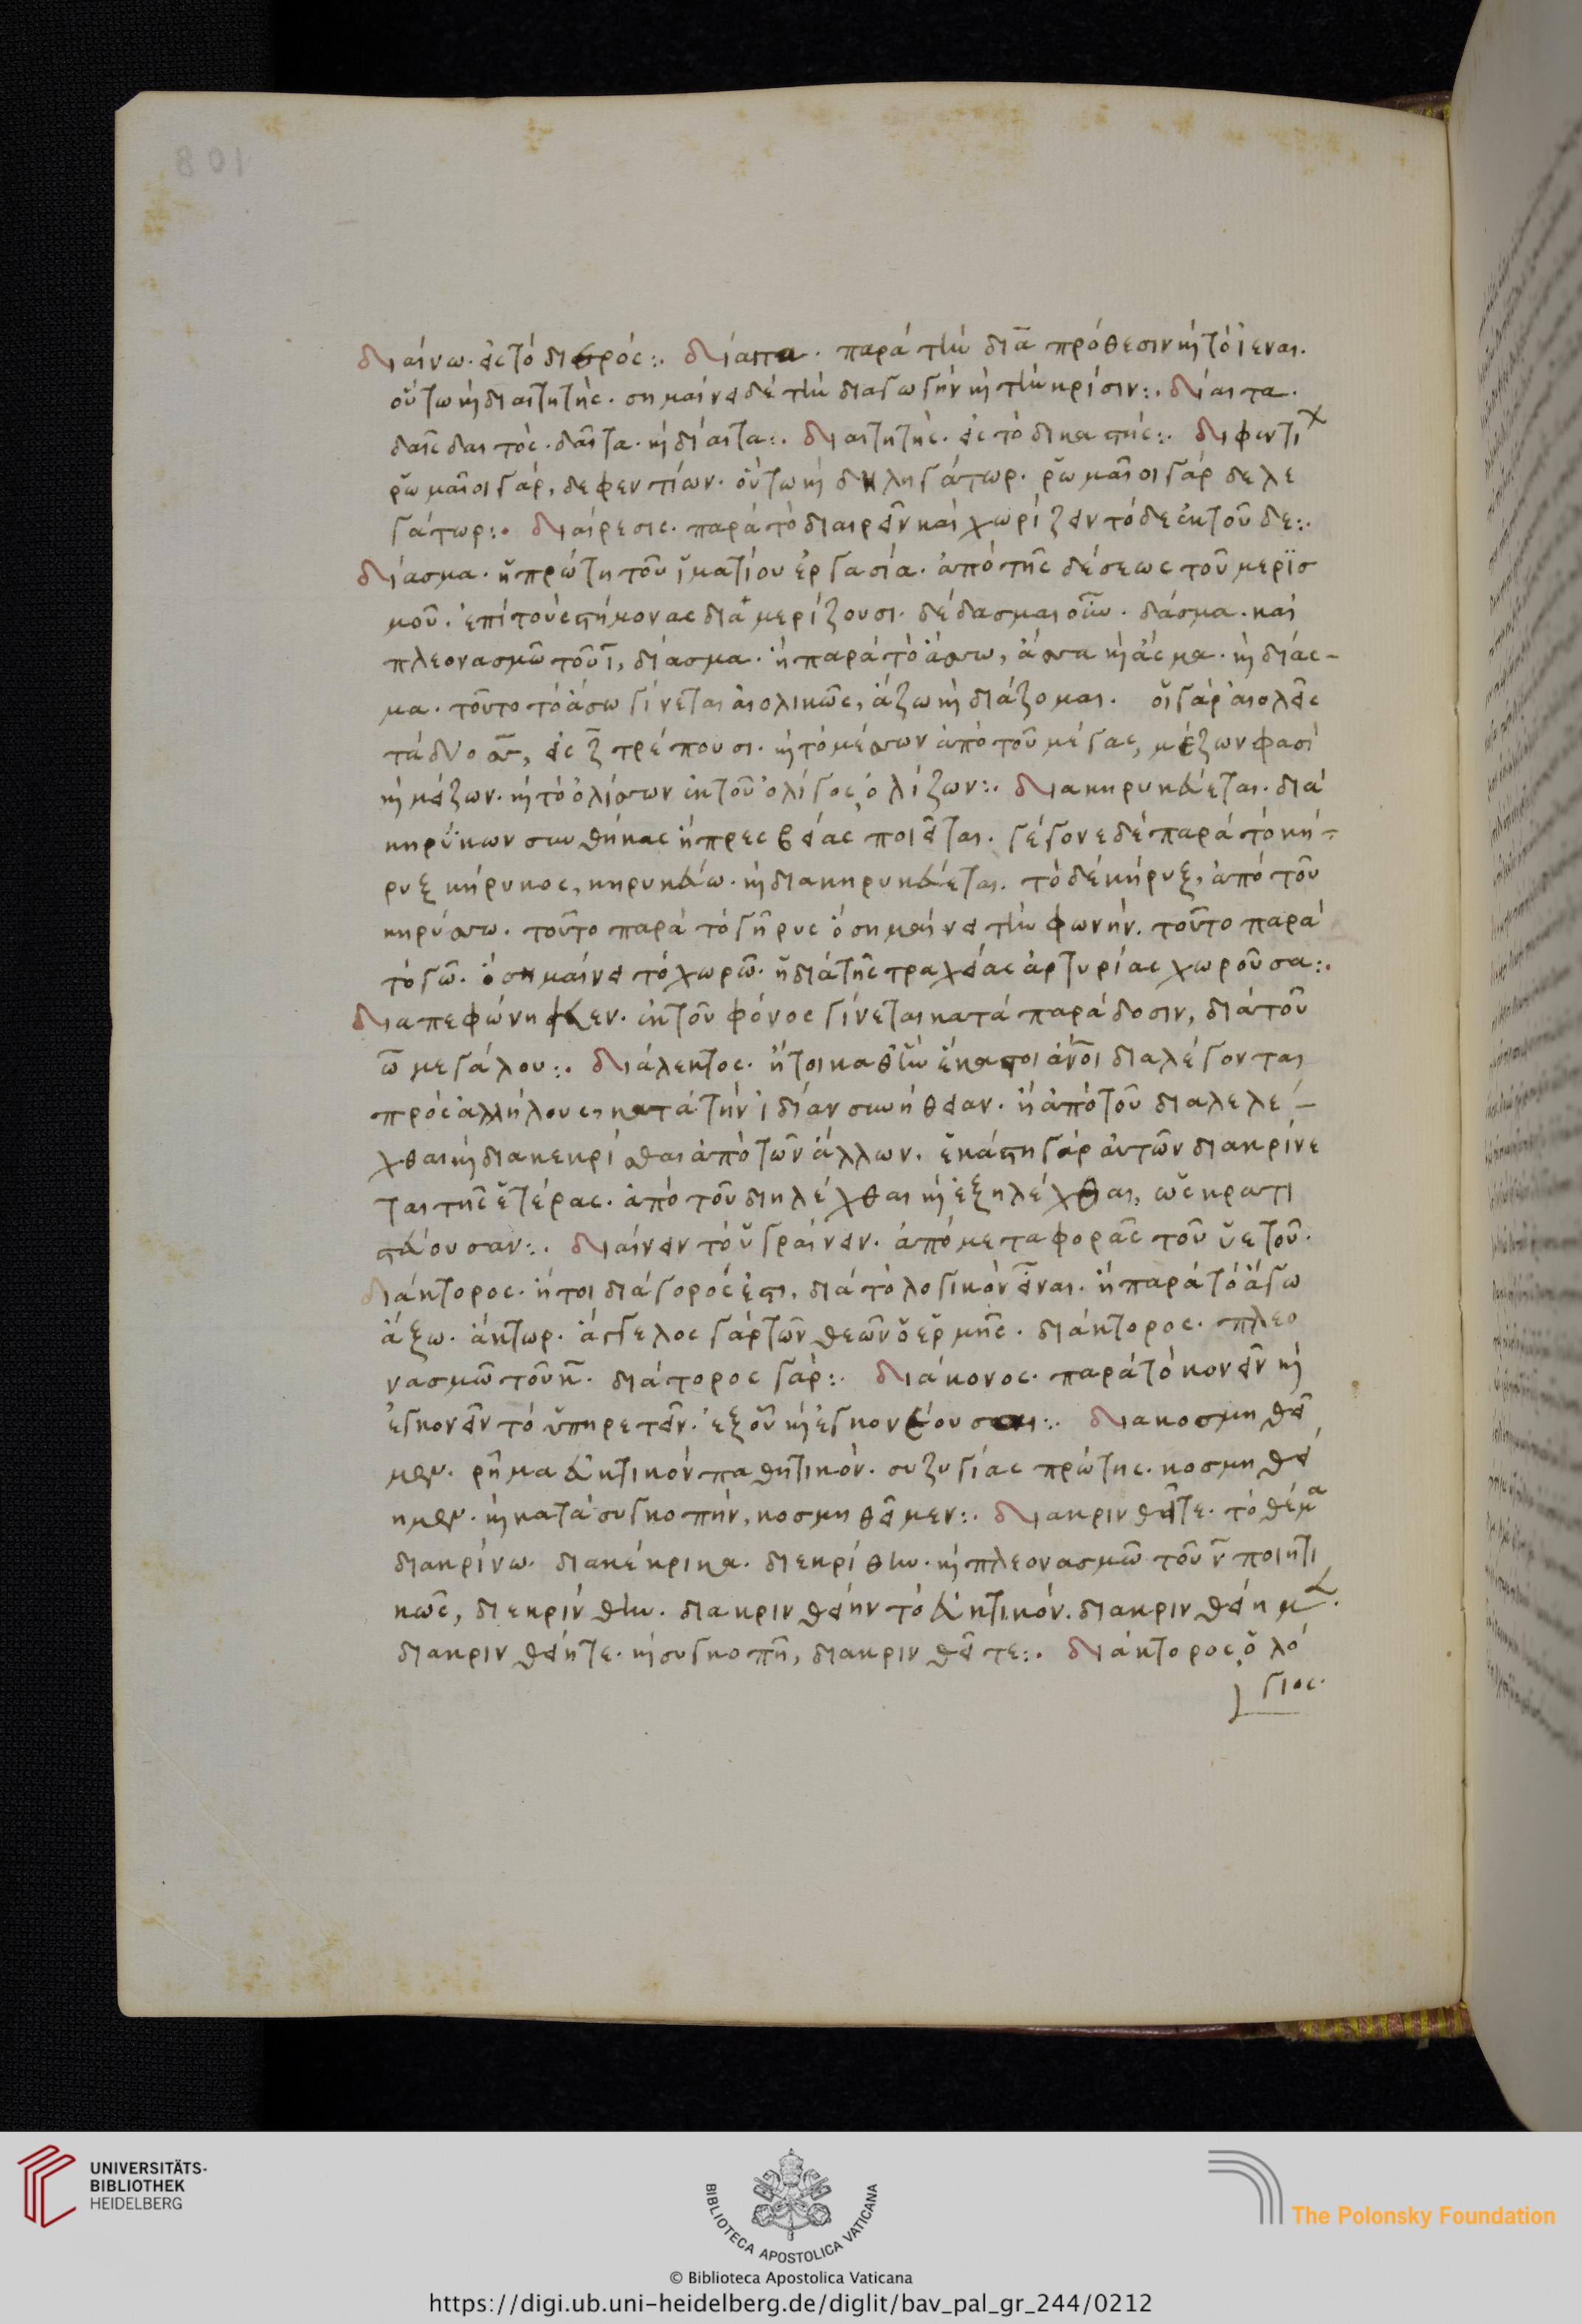 διαίνω. εἰς τὸ διερός:. δίαιτα. παρὰ τὴν διὰ πρόθεσιν καὶ τὸ ἰέναι.
οὕτω καὶ διαιτητής. σημαίνει δὲ τὴν διαγωγήν καὶ τὴν κρίσιν:. δίαιτα.
δαῒς δαιτός. δαῖτα. καὶ δίαιτα:. διαιτητής. εἰς τὸ δικαστής:. διφεντι
ῥωμαῖοι γάρ, δεφεντίων. οὕτω καὶ δηληγάτωρ. ῥωμαῖοι γάρ δελε
γάτωρ:. διαίρεσις. παρὰ τὸ διαιρεῖν καὶ χωρίζειν τόδε ἐκ τοῦδε:.
δίασμα. ἡ πρώτη τοῦ ἱματίου ἐργασία. ἀπὸ τῆς δέσεως τοῦ μερϊσ
μοῦ. ἐπὶ τοὺς στήμονας διαμερίζουσι. δέδασμαι οὖν. δάσμα. καὶ
πλεονασμῶ τοῦ ι, δίασμα. ἢ παρὰ τὸ ἄσσω, ἄσσα καὶ ἄσμα. καὶ δίασ-
μα. τοῦτο τὸ ἄσσω γίνεται αἰολικῶς, ἄζω καὶ διάζομαι. οἱ γὰρ αἰολεῖς
τὰ δύο σσ, εἰς ζ τρέπουσι. καὶ τὸ μέσσων ἀπὸ τοῦ μέγας, μέζων φασὶ
καὶ μείζων. καὶ τὸ ὀλίσσων ἐκ τοῦ ὀλίγος, ὀλίζων:. διακηρυκεύεται. διὰ
κηρύκων συνθήκας ἢ πρεσβείας ποιεῖται. γέγονε δὲ παρὰ τὸ κή-
ρυξ κήρυκος, κηρυκεύω. καὶ διακηρυκεύεται. τὸ δὲ κήρυξ, ἀπὸ τοῦ
κηρύσσω. τοῦτο παρὰ τὸ γῆρυς ὃ σημαίνει τὴν φωνήν. τοῦτο παρὰ
τὸ γῶ. ὃ σημαίνει τὸ χωρῶ. ἡ διὰ τῆς τραχείας ἀρτυρίας χωροῦσα:.
διαπεφώνηκεν. ἐκ τοῦ φόνος γίνεται κατὰ παράδοσιν, διὰ τοῦ
ω μεγάλου:. διάλεκτος. ἤτοι καθ' ἣν ἕκαστοι ἄνοι διαλέγονται
πρὸς ἀλλήλους, κατὰ τὴν ἰδίαν συνήθειαν. ἢ ἀπὸ τοῦ διαλελέ-
χθαι καὶ διακεκρίσθαι ἀπὸ τῶν ἄλλων. ἑκάστη γὰρ αὐτῶν διακρίνε
ται τῆς ἑτέρας. ἀπὸ τοῦ διηλέχθαι καὶ ἐξηλέχθαι, ὡς κρατι
στεύουσαν:. διαίνειν τὸ ὑγραίνειν. ἀπὸ μεταφορᾶς τοῦ ὑετοῦ.
διάκτορος. ἤτοι διάγορός ἐστι, διὰ τὸ λογικὸν εἶναι. ἢ παρὰ τὸ ἄγω
ἄξω. ἄκτωρ. ἄγγελος γὰρ τῶν θεῶν ὁ ἑρμῆς. διάκτορος. πλεο
νασμῶ τοῦ κ. διάτορος γάρ:. διάκονος. παρὰ τὸ κονεῖν καὶ
ἐγκονεῖν τὸ ὑπηρετεῖν. ἐξ οὗ καὶ ἐγκονέουσαι:. διακοσμηθεῖ
μεν. ῥῆμα εὐκτικόν παθητικόν. συζυγίας πρώτης. κοσμηθεί
ημεν. καὶ κατὰ συγκοπήν, κοσμηθεῖμεν:. διακρινθεῖτε. τὸ θέμα
διακρίνω. διακέκρικα. διεκρίθην. καὶ πλεονασμῶ τοῦ ν ποιητι
κῶς, διεκρίνθην. διακρινθείην τὸ εὐκτικόν. διακρινθείημεν.
διακρινθείητε. καὶ συγκοπῆ, διακρινθεῖτε:. διάκτορος, ὁ λό
γιος.
UNIVERSITÄTS-
BIBLIOTHEK
HEIDELBERG
BIBLIOTECA APOSTOLICA VATICANA
The Polonsky Foundation
© Biblioteca Apostolica Vaticana
https://digi.ub.uni-heidelberg.de/diglit/bav_pal_gr_244/0212